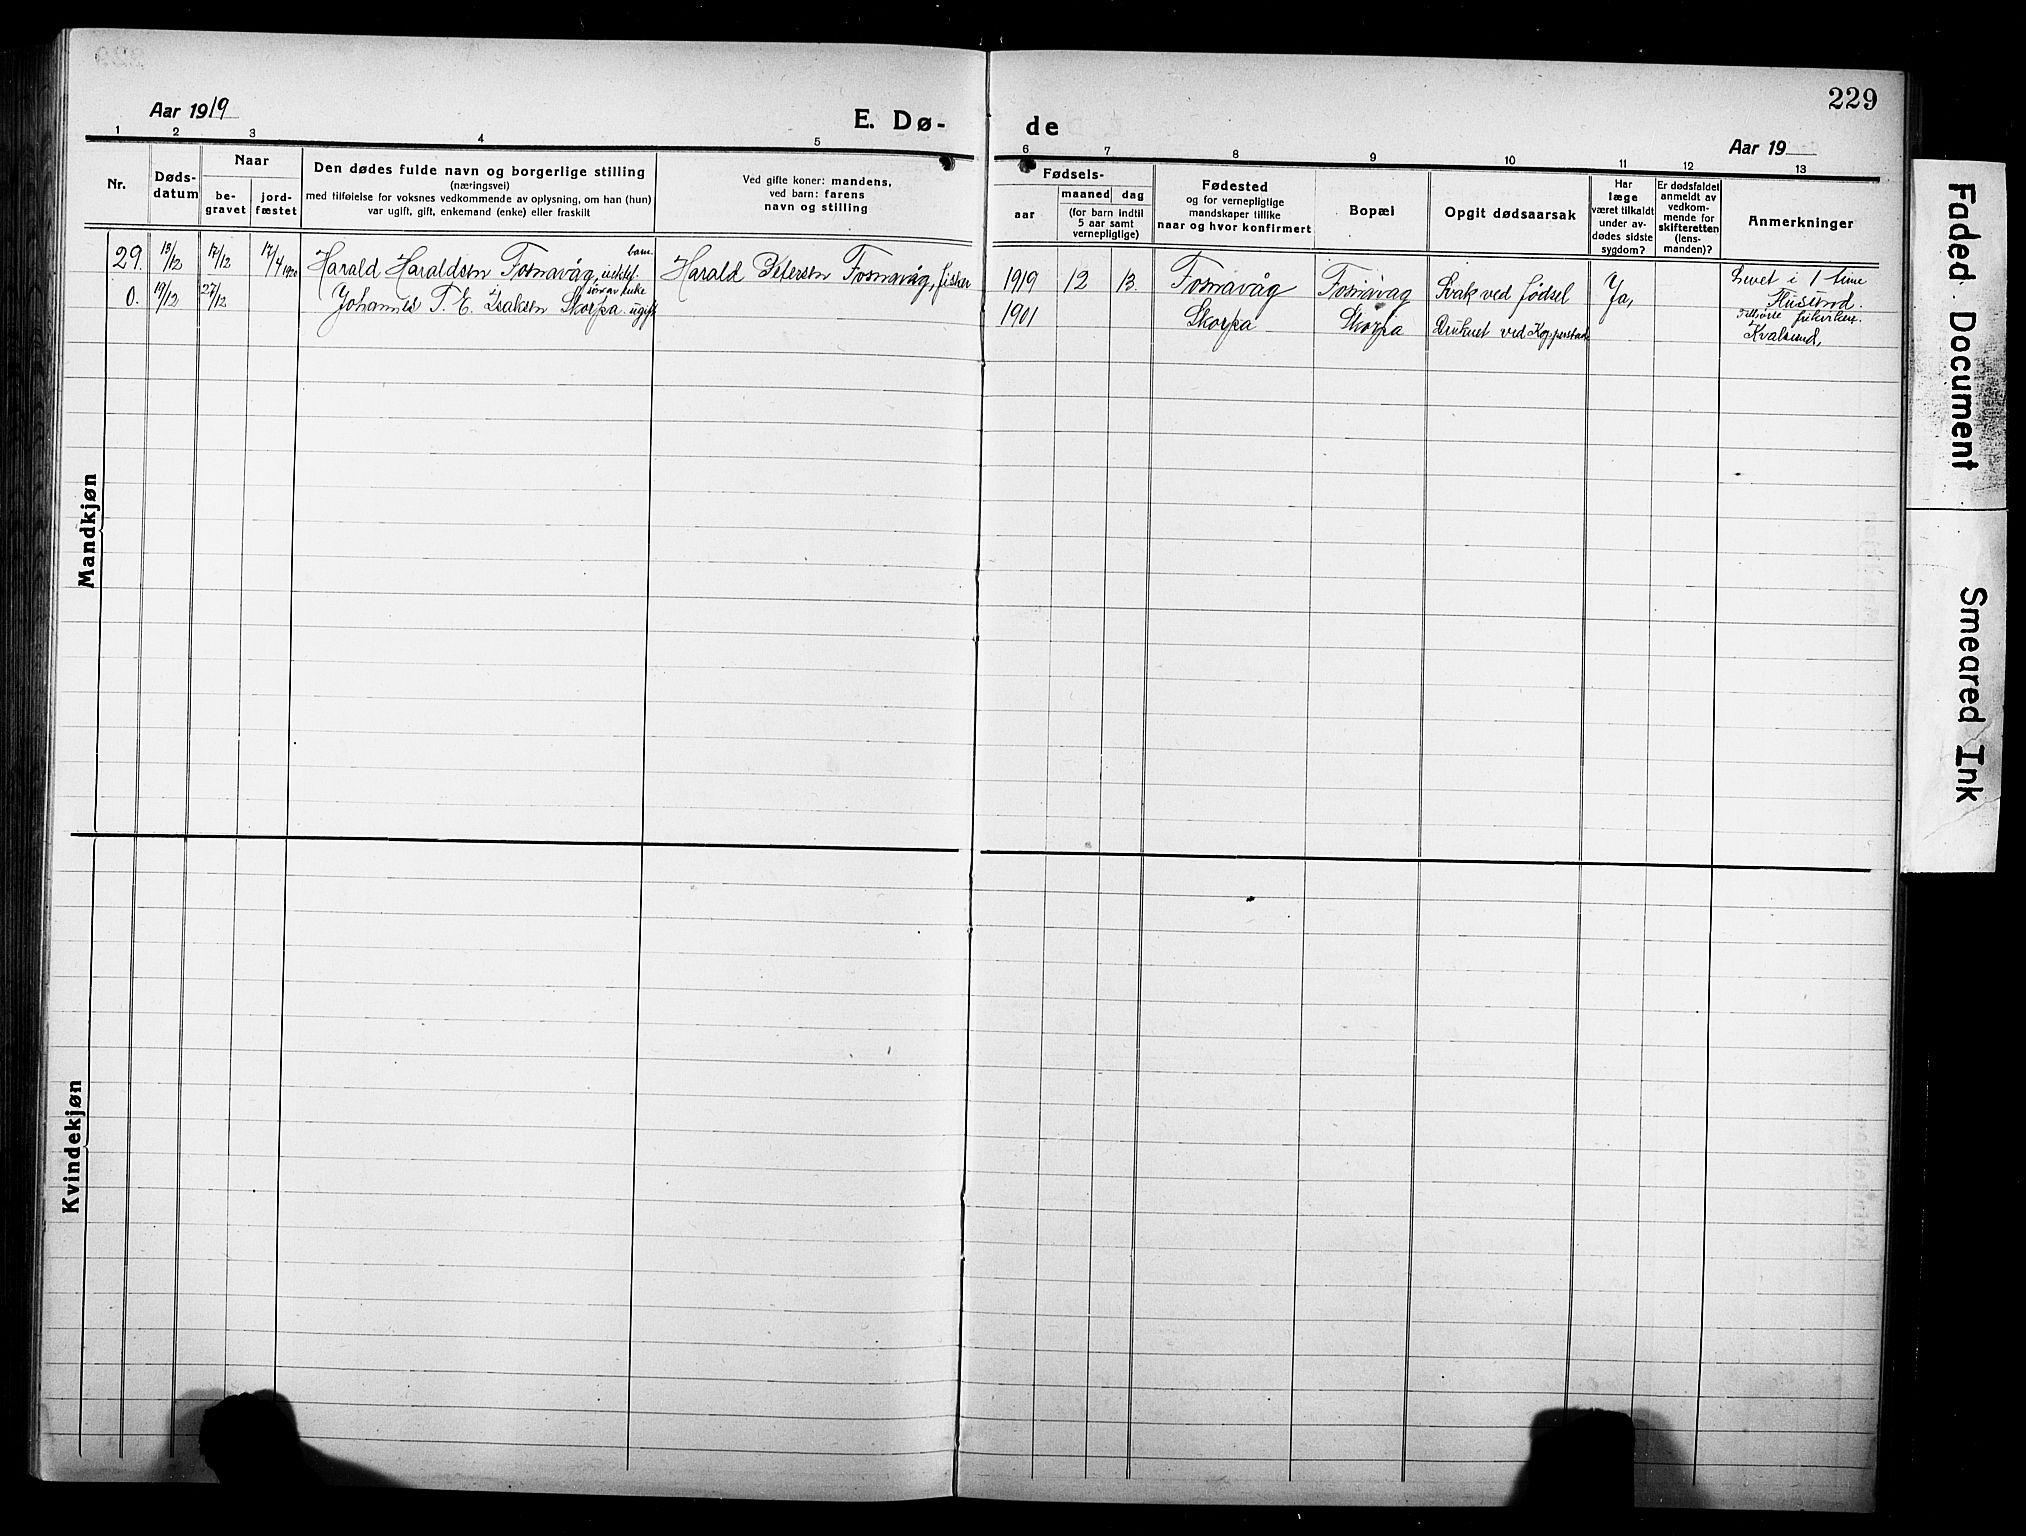 229
Aar 1919
E. Dø-
de
Aar 19
1 2 3 4 5 6 7 8 9 10 11 12 13
Nr.
Døds-
datum
Naar
be-
gravet
jord-
fæstet
Den dødes fulde navn og borgerlige stilling
(næringsvei)
med tilføielse for voksnes vedkommende av oplysning, om han (hun)
var ugift, gift, enkemand (enke) eller fraskilt
Ved gifte koner: mandens,
ved barn: farens
navn og stilling
Fødsels-
aar
maaned dag
(for barn indtil
5 aar samt
vernepligtige)
Fødested
og for vernepligtige
mandskaper tillike
naar og hvor konfirmert
Bopæl
Opgit dødsaarsak
Har
læge
været tilkaldt
under av-
dødes sidste
sygdom?
Er dødsfaldet
anmeldt av
vedkom-
mende for
skifteretten
(lens-
manden)?
Anmerkninger
Mandkjøn
29. 13/12 17/12 17/4 1920 Harald Haraldsen Fosnavåg, barn Harald Petersen Fosnavåg, fisker 1919 12 13. Fosnavåg Fosnavag Svak ved fødsel Ja, Levet i 1 time
0. 19/12 27/12 Johannes T. E. Isaksen Skorpa. søn av enke ugift 1901 Skorpa Skorpa Druknet ved Kopperstad
Tilhørte frikirken.
Kvalsund,
Kvindekjøn
Faded Document
Smeared Ink